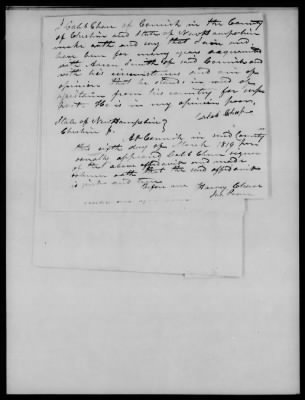 I Caleb Chase of Cornish in the County
of Cheshire and State of New Hampshire
make oath and say that I am and
have been for many years acquainted
with Aaron Smith of said Cornish and
with his circumstances and am of
opinion that he stands in need of
assistance from his country for sup
port. He is in my opinion poor.
Caleb Chase
State of New Hampshire
Cheshire Ss.
At Cornish in said County
this sixth day of March 1819 per
sonally appeared Caleb Chase signer
of the above affidavit and made
solemn oath that the said affidavit
is just and true
Before me Harvey Chase
Jus. Peace